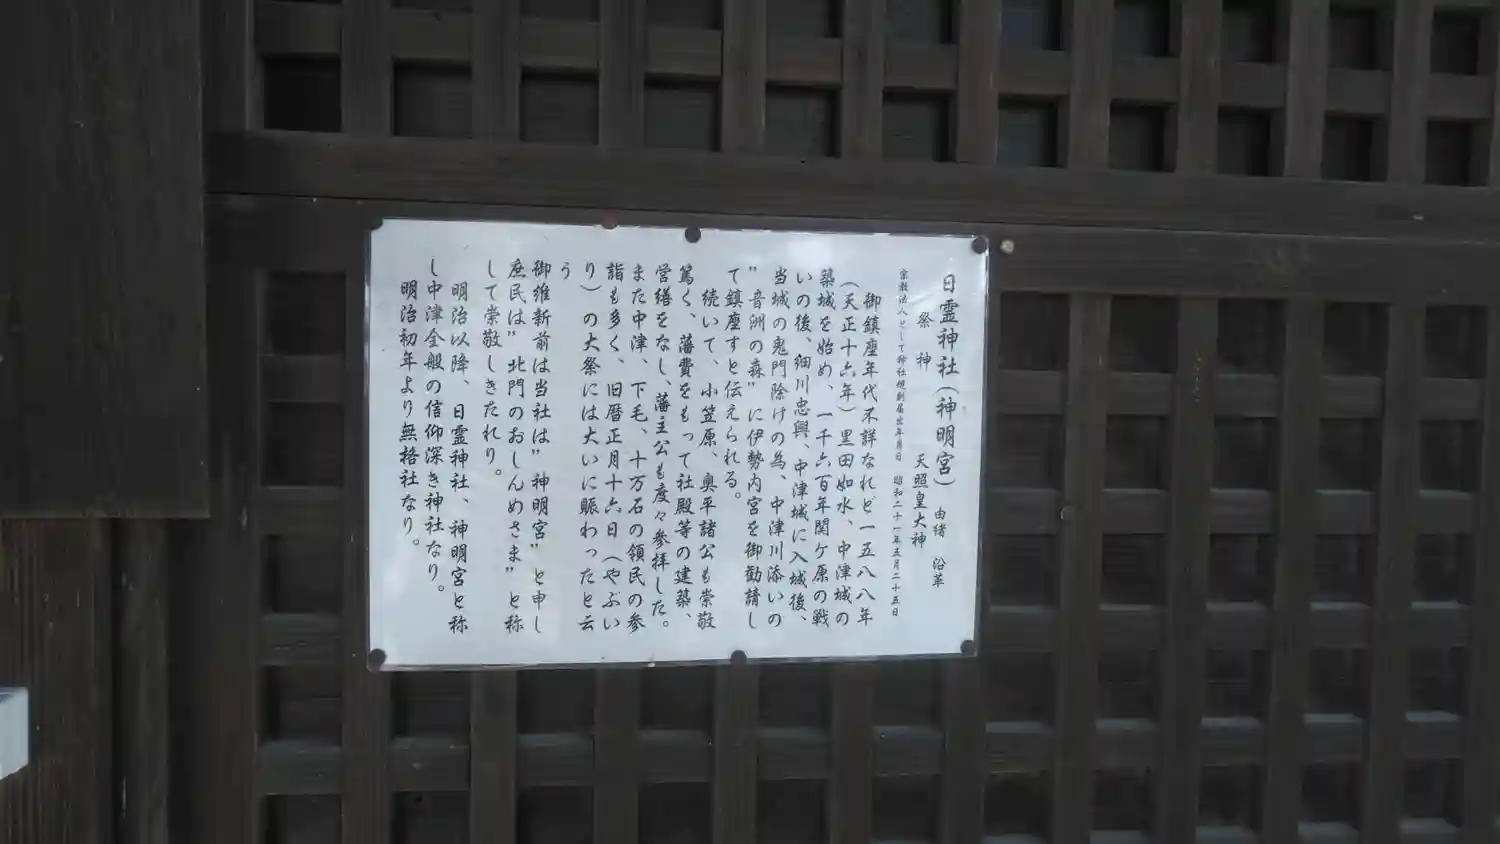 日霊神社（神明宮） 由緒 沿革
祭神 天照皇大神
宗教法人として神社規則届出年月日 昭和二十一年五月二十五日
御鎮座年代不詳なれど一五八八年
（天正十六年）黒田如水、中津城の
築城を始め、一千六百年関ケ原の戦
いの後、細川忠興、中津城に入城後、
当城の鬼門除けの為、中津川添いの
"音洲の森"に伊勢内宮を御勧請し
て鎮座すと伝えられる。
続いて、小笠原、奥平諸公も崇敬
篤く、藩費をもって社殿等の建築、
営繕をなし、藩主公も度々参拝した。
また中津、下毛、十万石の領民の参
詣も多く、旧暦正月十六日（やぶい
り）の大祭には大いに賑わったと云
う
御維新前は当社は"神明宮"と申し
庶民は"北門のおしんめさま"と称
して崇敬しきたれり。
明治以降、日霊神社、神明宮と称
し中津全般の信仰深き神社なり。
明治初年より無格社なり。